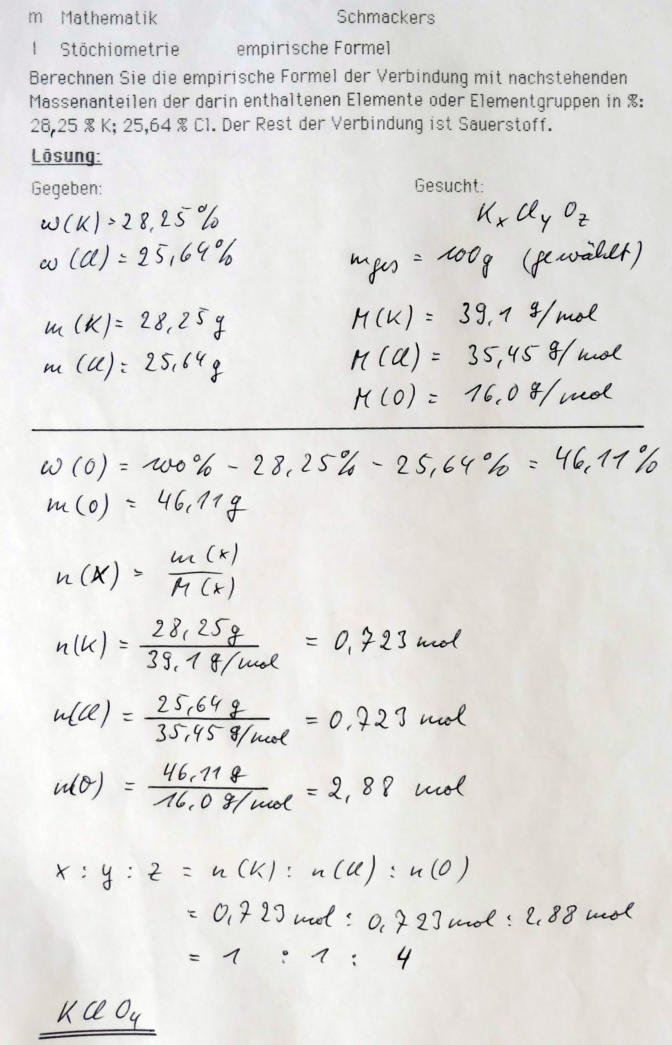 m Mathematik Schmackers
l Stöchiometrie empirische Formel
Berechnen Sie die empirische Formel der Verbindung mit nachstehenden
Massenanteilen der darin enthaltenen Elemente oder Elementgruppen in %:
28,25 % K; 25,64 % Cl. Der Rest der Verbindung ist Sauerstoff.
Lösung:
Gegeben: Gesucht:
w(K) = 28,25% KₓClᵧO_z
w(Cl) = 25,64% m_ges = 100g (gewählt)
m(K) = 28,25g M(K) = 39,1 g/mol
m(Cl) = 25,64g M(Cl) = 35,45 g/mol
M(O) = 16,0 g/mol
w(O) = 100% - 28,25% - 25,64% = 46,11%
m(O) = 46,11g
n(X) = m(x) / M(x)
n(K) = 28,25g / 39,1 g/mol = 0,723 mol
n(Cl) = 25,64 g / 35,45 g/mol = 0,723 mol
n(O) = 46,11 g / 16,0 g/mol = 2,88 mol
x : y : z = n(K) : n(Cl) : n(O)
= 0,723 mol : 0,723 mol : 2,88 mol
= 1 : 1 : 4
KClO₄